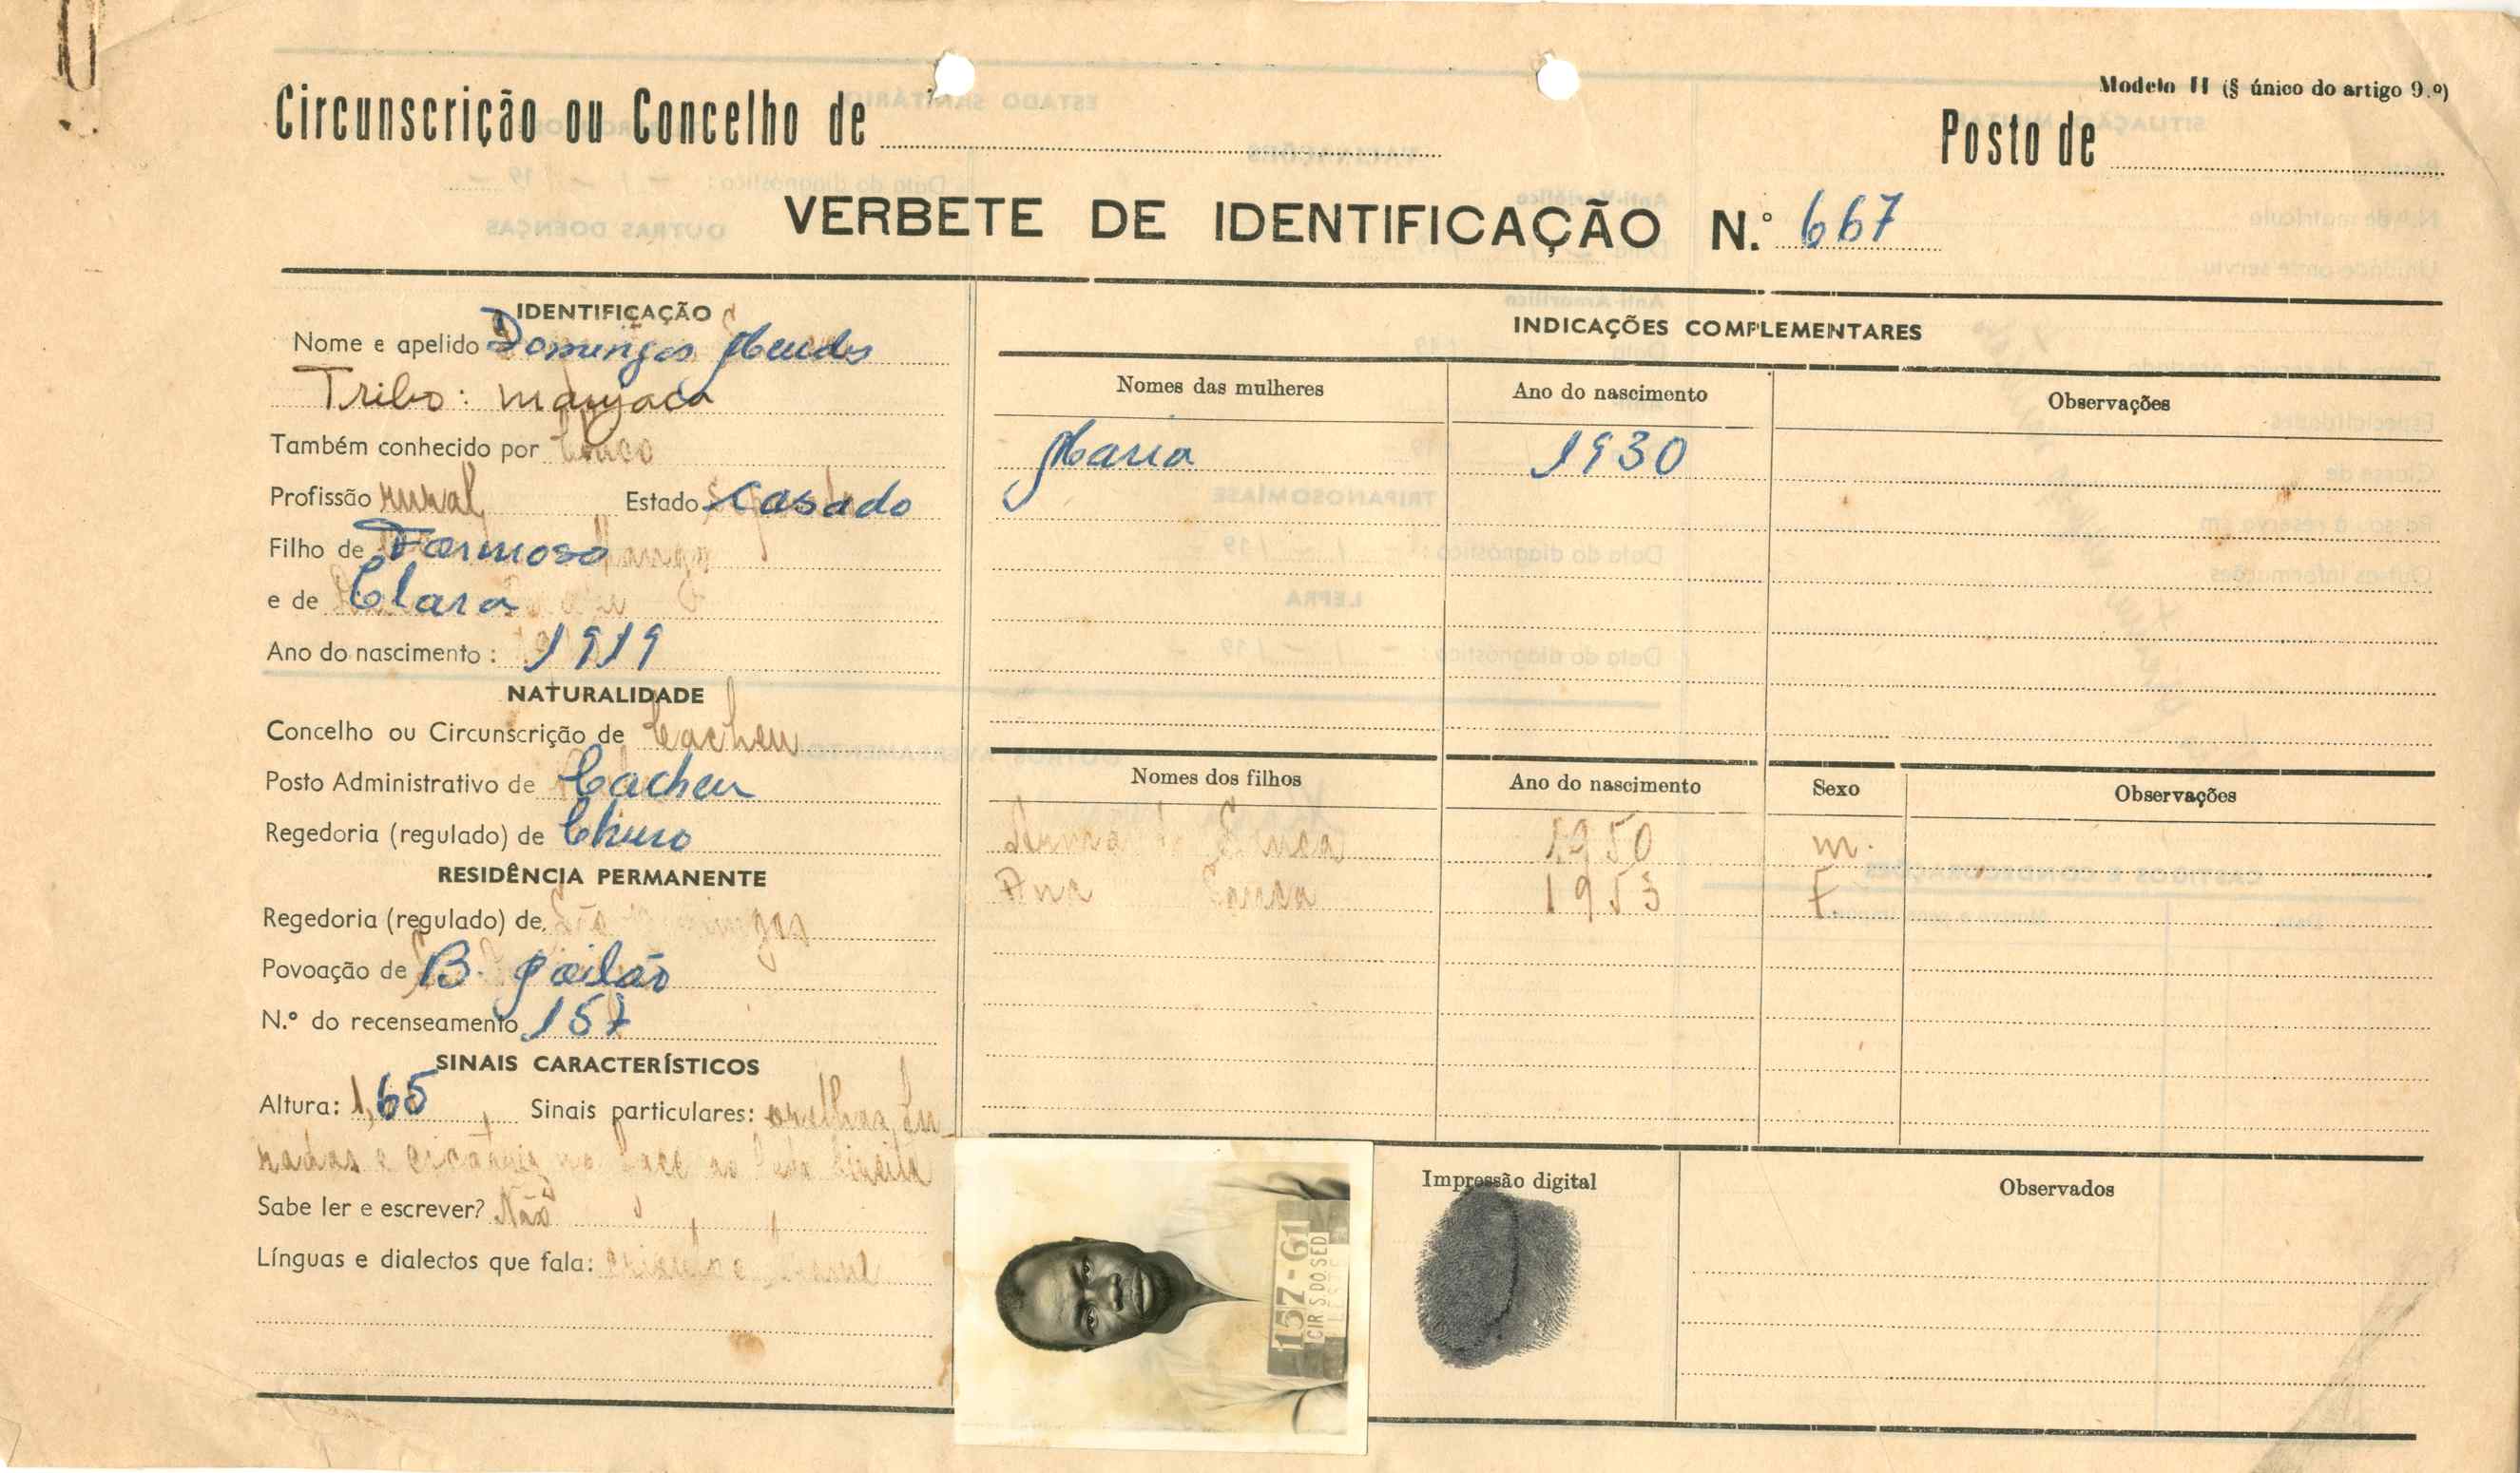 Modelo II (§ único do artigo 9.º)
Circunscrição ou Concelho de
Posto de
VERBETE DE IDENTIFICAÇÃO N.º 667
IDENTIFICAÇÃO
Nome e apelido Domingos Mendes
Tribo: manjaca
Também conhecido por
Profissão rural Estado casado
Filho de Formoso
e de Clara
Ano do nascimento: 1919
NATURALIDADE
Concelho ou Circunscrição de Cacheu
Posto Administrativo de Cacheu
Regedoria (regulado) de Churo
RESIDÊNCIA PERMANENTE
Regedoria (regulado) de São Domingos
Povoação de B.
N.º do recenseamento 157
SINAIS CARACTERÍSTICOS
Altura: 1,65 Sinais particulares: orelhas fu-
radas e cicatriz na face ao lado direito
Sabe ler e escrever? Não
Línguas e dialectos que fala:
INDICAÇÕES COMPLEMENTARES
Nomes das mulheres Ano do nascimento Observações
Maria 1930
Nomes dos filhos Ano do nascimento Sexo Observações
1950 m.
Ana 1953 F.
157-61
CIR S DOS ED
Impressão digital
Observados